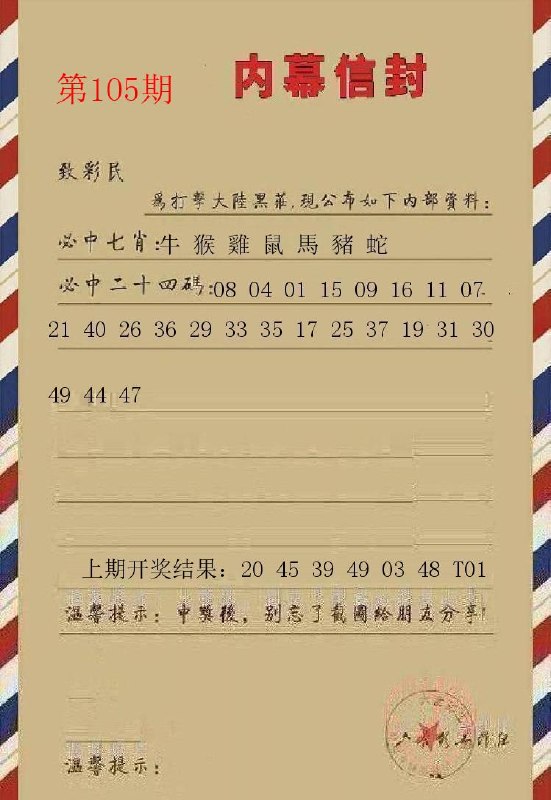 第105期
内幕信封
致彩民
為打擊大陸黑莊,現公布如下内部資料:
必中七肖:牛 猴 雞 鼠 馬 豬 蛇
必中二十四碼:08 04 01 15 09 16 11 07
21 40 26 36 29 33 35 17 25 37 19 31 30
49 44 47
上期开奖结果: 20 45 39 49 03 48 T01
溫馨提示: 中獎後, 别忘了截圖給朋友分享!
溫馨提示: